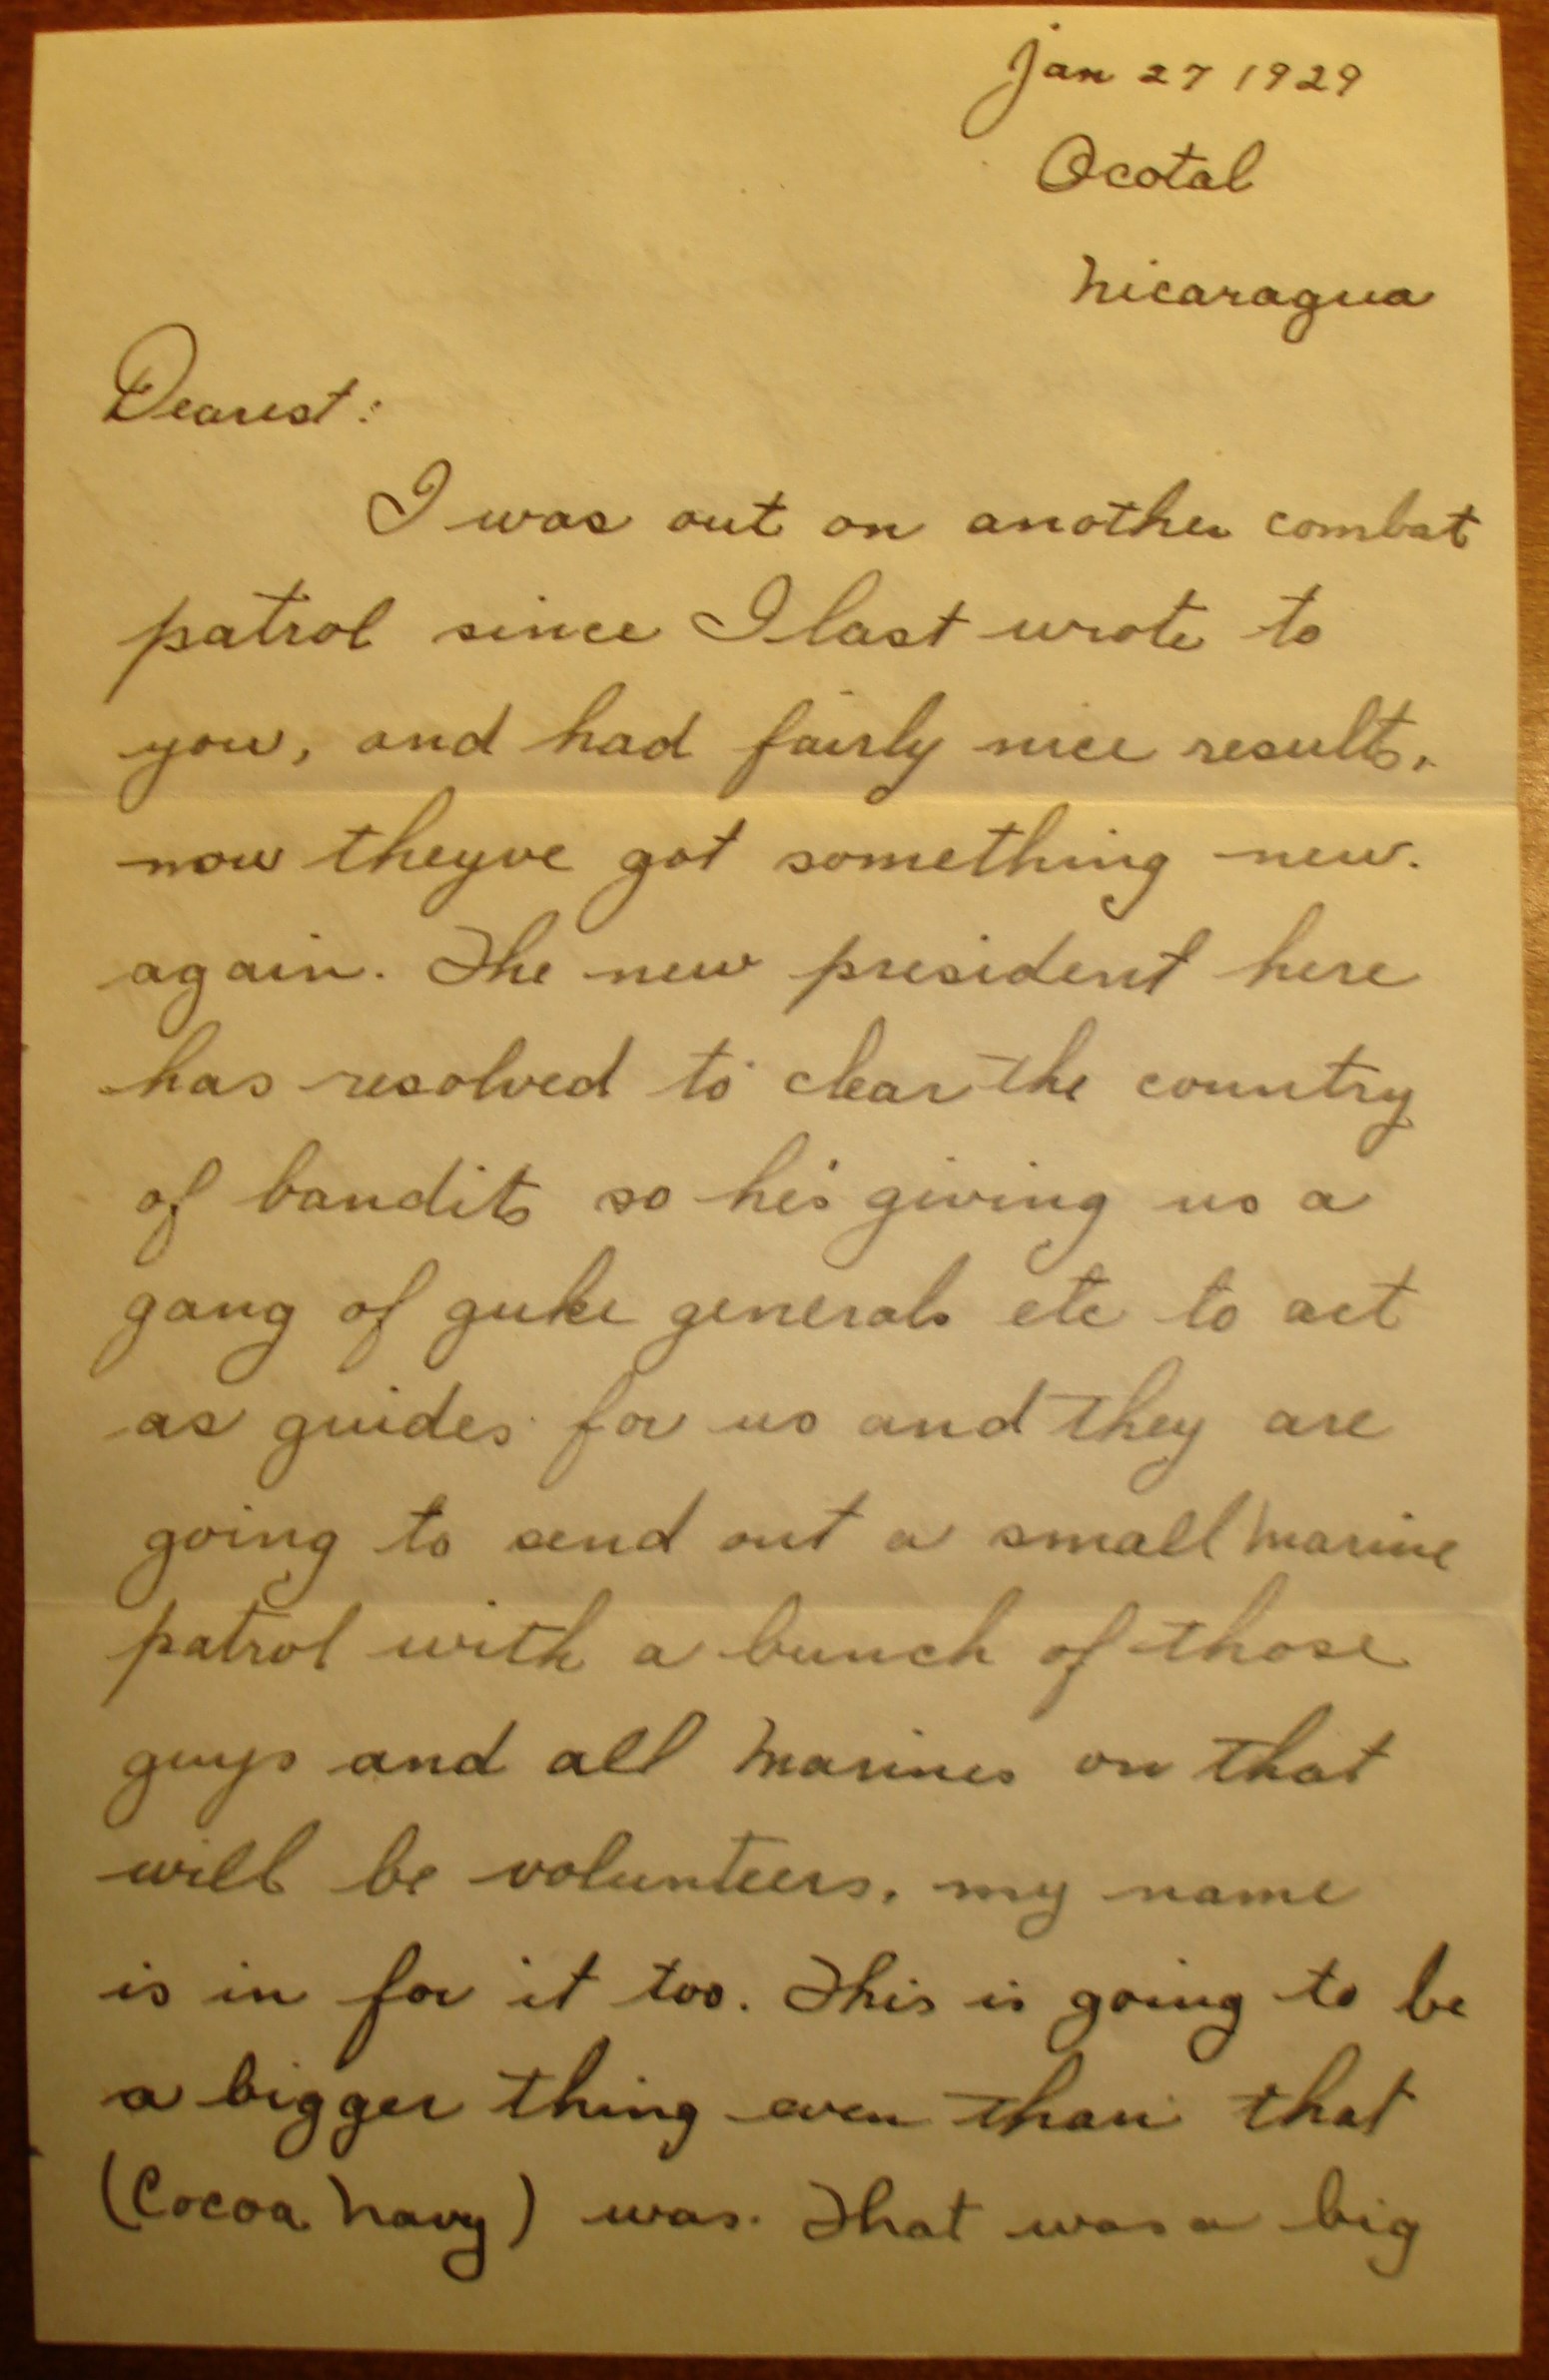 Jan 27 1929
Ocotal
Nicaragua
Dearest:
I was out on another combat
patrol since I last wrote to
you, and had fairly nice results.
now theyve got something new.
again. The new president here
has resolved to clear the country
of bandits so he's giving us a
gang of guke generals etc to act
as guides for us and they are
going to send out a small Marine
patrol with a bunch of those
guys and all Marines on that
will be volunteers. my name
is in for it too. This is going to be
a bigger thing even than that
(Cocoa Navy) was. That was a big